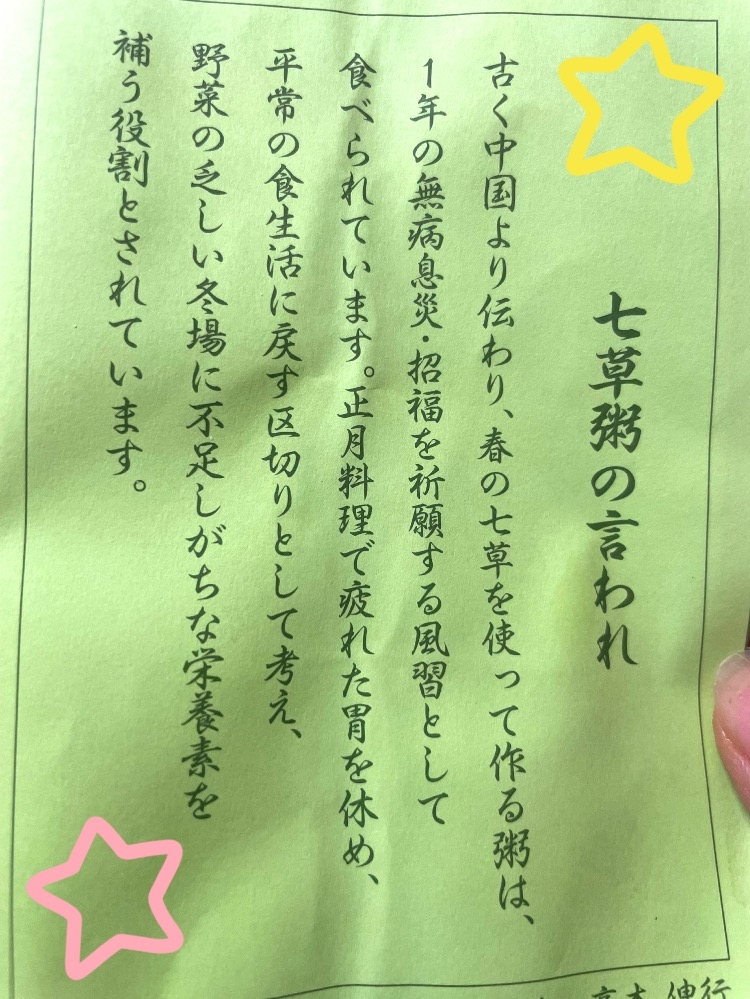 七草粥の言われ
古く中国より伝わり、春の七草を使って作る粥は、
1年の無病息災・招福を祈願する風習として
食べられています。正月料理で疲れた胃を休め、
平常の食生活に戻す区切りとして考え、
野菜の乏しい冬場に不足しがちな栄養素を
補う役割とされています。